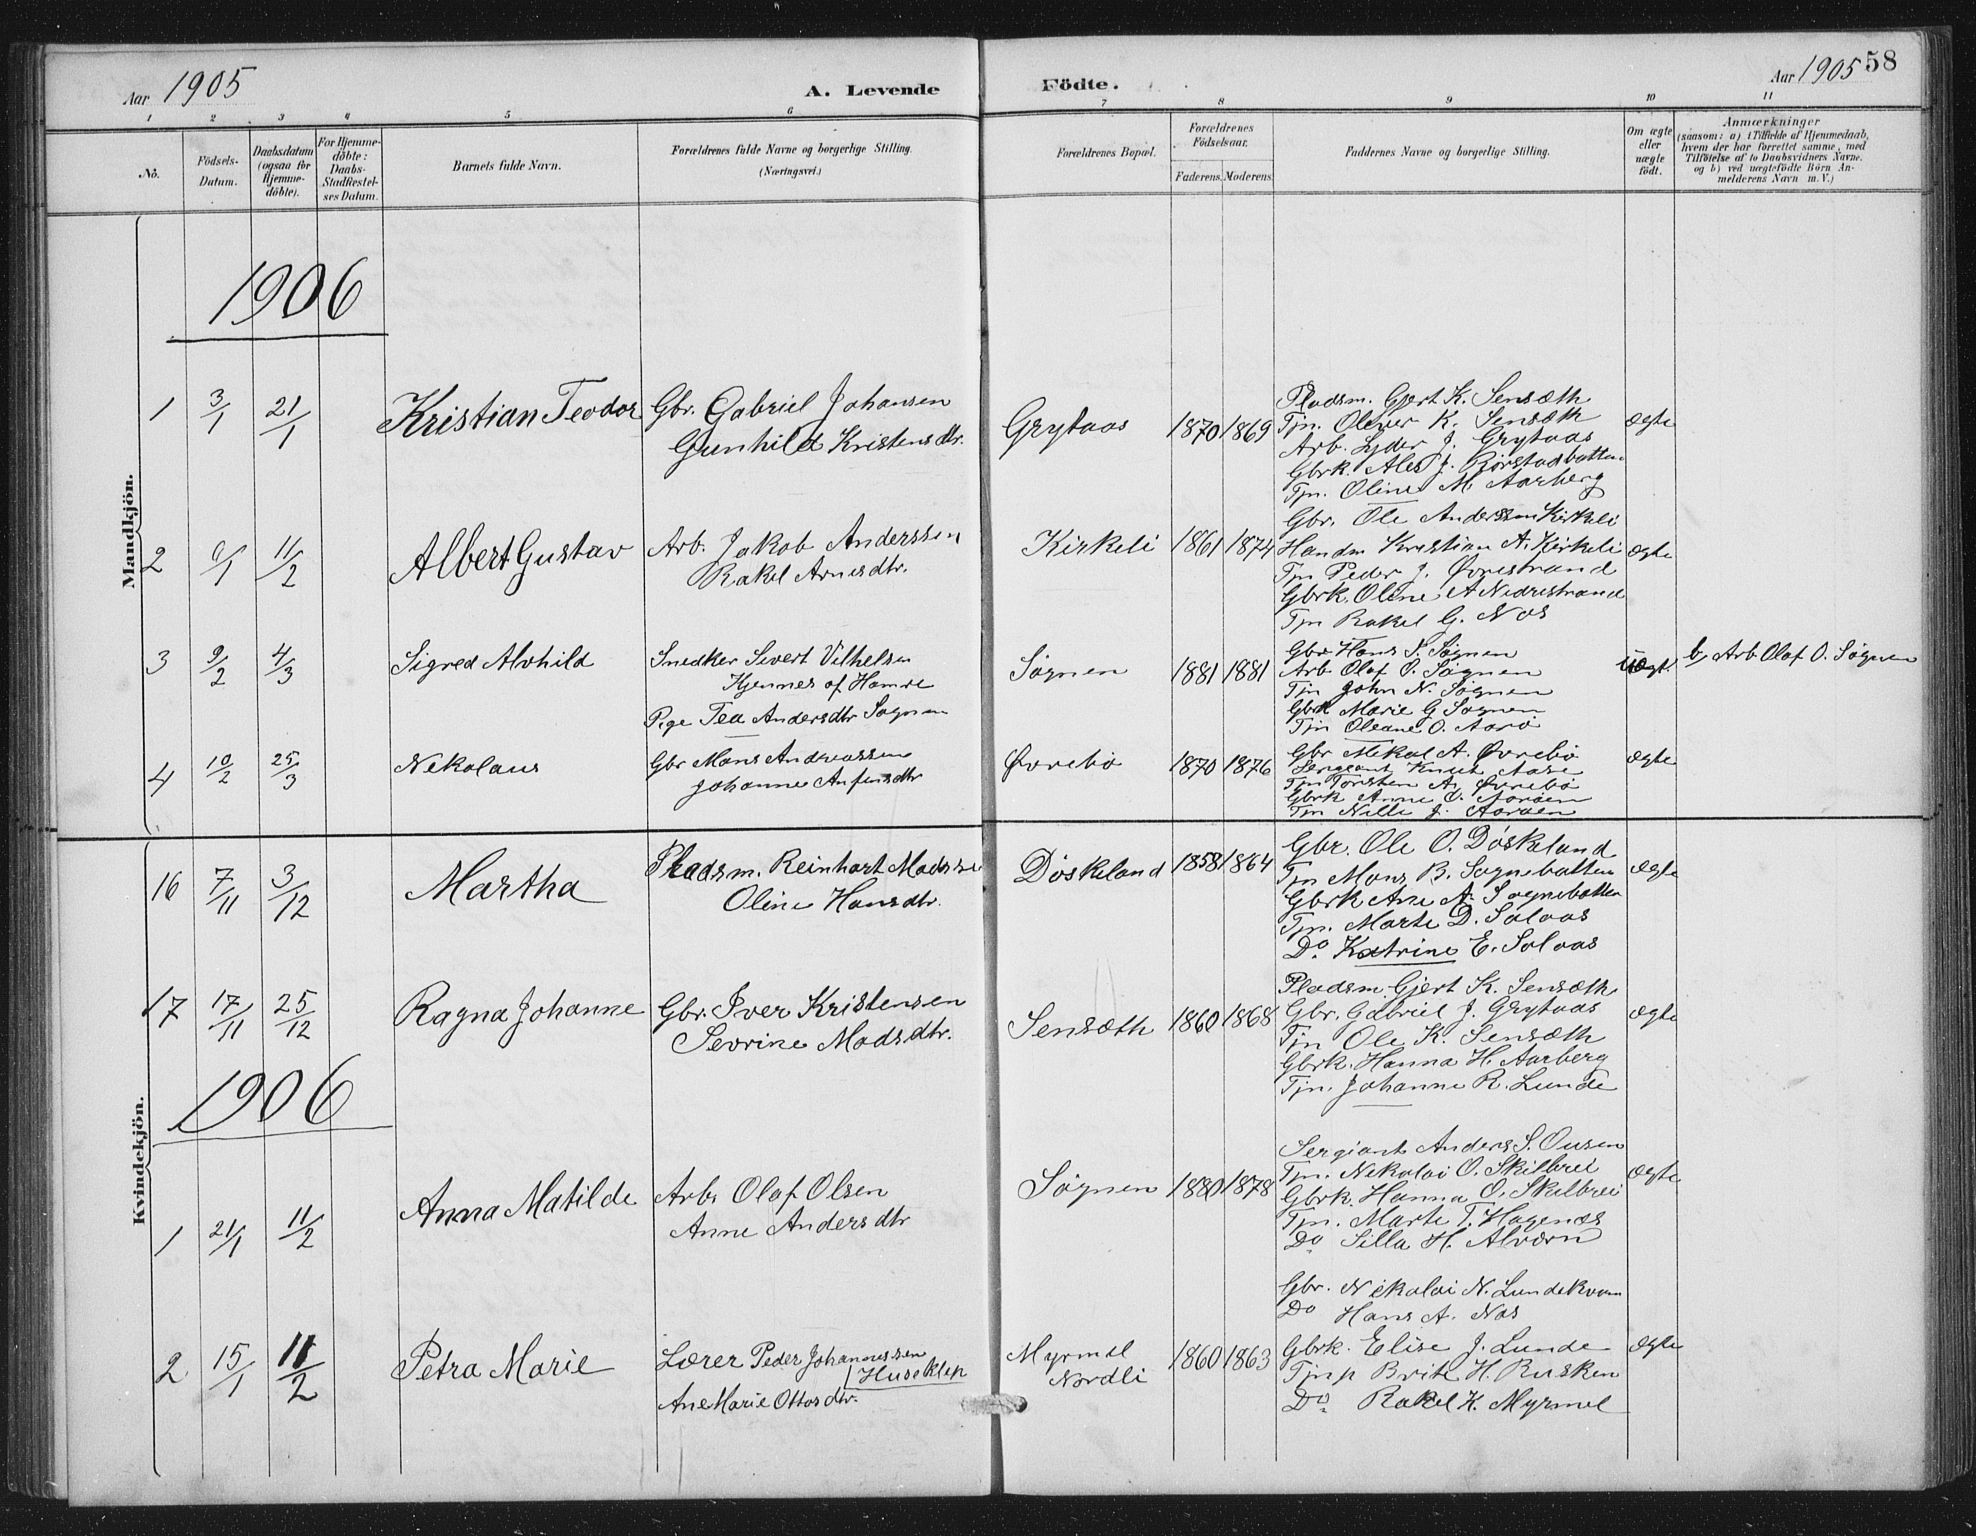 Aar 1905
A. Levende
Födte.
Aar 1905 58
1 2 3 4 5 6 7 8 9 10 11
No.
Födsels-
Datum.
Daabsdatum
(ogsaa for
Hjemme-
döbte).
For Hjemme-
döbte:
Daabs-
Stadfæstel-
ses Datum.
Barnets fulde Navn.
Forældrenes fulde Navne og borgerlige Stilling.
(Næringsvei.)
Forældrenes Bopæl.
Forældrenes
Födselsaar.
Faderens. Moderens.
Faddernes Navne og borgerlige Stilling.
Om ægte
eller
uægte
födt.
Anmærkninger
(saasom: a) i Tilfælde af Hjemmedaab,
hvem der har forrettet samme, med
Tilföielse af to Daabsvidners Navne,
og b) ved uægtefödte Börn An-
melderens Navn m. V.)
Mandkjön.
1906
1 3/1 21/1 Kristian Teodor
Gbr. Gabriel Johansen
Gunhild Kristensdtr.
Grytaas 1870 1869
Pladsm. Gjert K. Sensæth
Tjn. Oliver K. Sensæth
Arb. Lyder J. Grytaas
Gbrk. Ales J. Rørstadbotten
Tjn. Oline M. Aarberg
ægte
2 9/1 11/2 Albert Gustav
Arb. Jakob Anderssen
Rakel Arnesdtr.
Kirkeli 1861 1874
Gbr. Ole Anderssen Kirkeli
Handm Kristian A. Kirkeli
Tjn Peder J. Øvrestrand
Gbrk. Oline A Nedrestrand
Tjn Rakel G. Nos
ægte
3 9/2 4/3 Sigred Alvhild
Snedker Sivert Vilhelsen
Hjennes af Hamre
Pige Tea Andersdtr Søgnen
Søgnen 1881 1881
Gbr Hans N. Søgnen
Arb Olaf O. Søgnen
Tjn John N. Søgnen
Gbrk Marie G Søgnen
Tjn Oleane O. Aarø
uægt.
b, Arb Olaf O. Søgnen
4 10/2 25/3 Nekolaus
Gbr Mons Andreassen
Johanne Anfinsdtr
Øvrebø 1870 1876
Gbr Mikal A. Øvrebø
Sergeant Knut Aase
Tjn Torsten A. Øvrebø
Gbrk Anne O. Aarøen
Tjn Nille J. Aarøen
ægte
Kvindekjön.
16 7/11 3/12 Martha
Pladsm. Reinhart Madssen
Oline Hansdtr.
Døskeland 1858 1864
Gbr. Ole O. Døskeland
Tjn Mons B. Sognebotten
Gbrk Ane A. Sognebotten
Tjn. Marte D. Solaas
Do. Katrine E. Solaas
ægte
17 17/11 25/12 Ragna Johanne
Gbr. Iver Kristensen
Sevrine Madsdtr.
Sensæth 1860 1868
Pladsm. Gjert K. Sensæth
Gbr. Gabriel J. Grytaas
Tjn Ole K. Sensæth
Gbrk. Hanna H. Aarberg
Tjn. Johanne R. Lunde
ægte
1906
1 21/1 11/2 Anna Matilde
Arb. Olaf Olsen
Anne Andersdtr
Søgnen 1880 1878
Sergiant Anders S. Ousen
Tjn. Nekolai O. Skilbrei
Gbrk. Hanna O. Skilbrei
Tjn. Marte T. Hagenæs
Do Silla H. Alværn
ægte
2 15/1 11/2 Petra Marie
Lærer Peder Johannessen
Huseklep
Ane Marie Ottosdtr.
Myrmel
Nordli
1860 1863
Gbr. Nikolai N. Lundekvam
Do Hans A. Nos
Gbrk. Elise J. Lunde
Tjnp Brite H. Rusken
Do. Rakel K. Myrmel
ægte